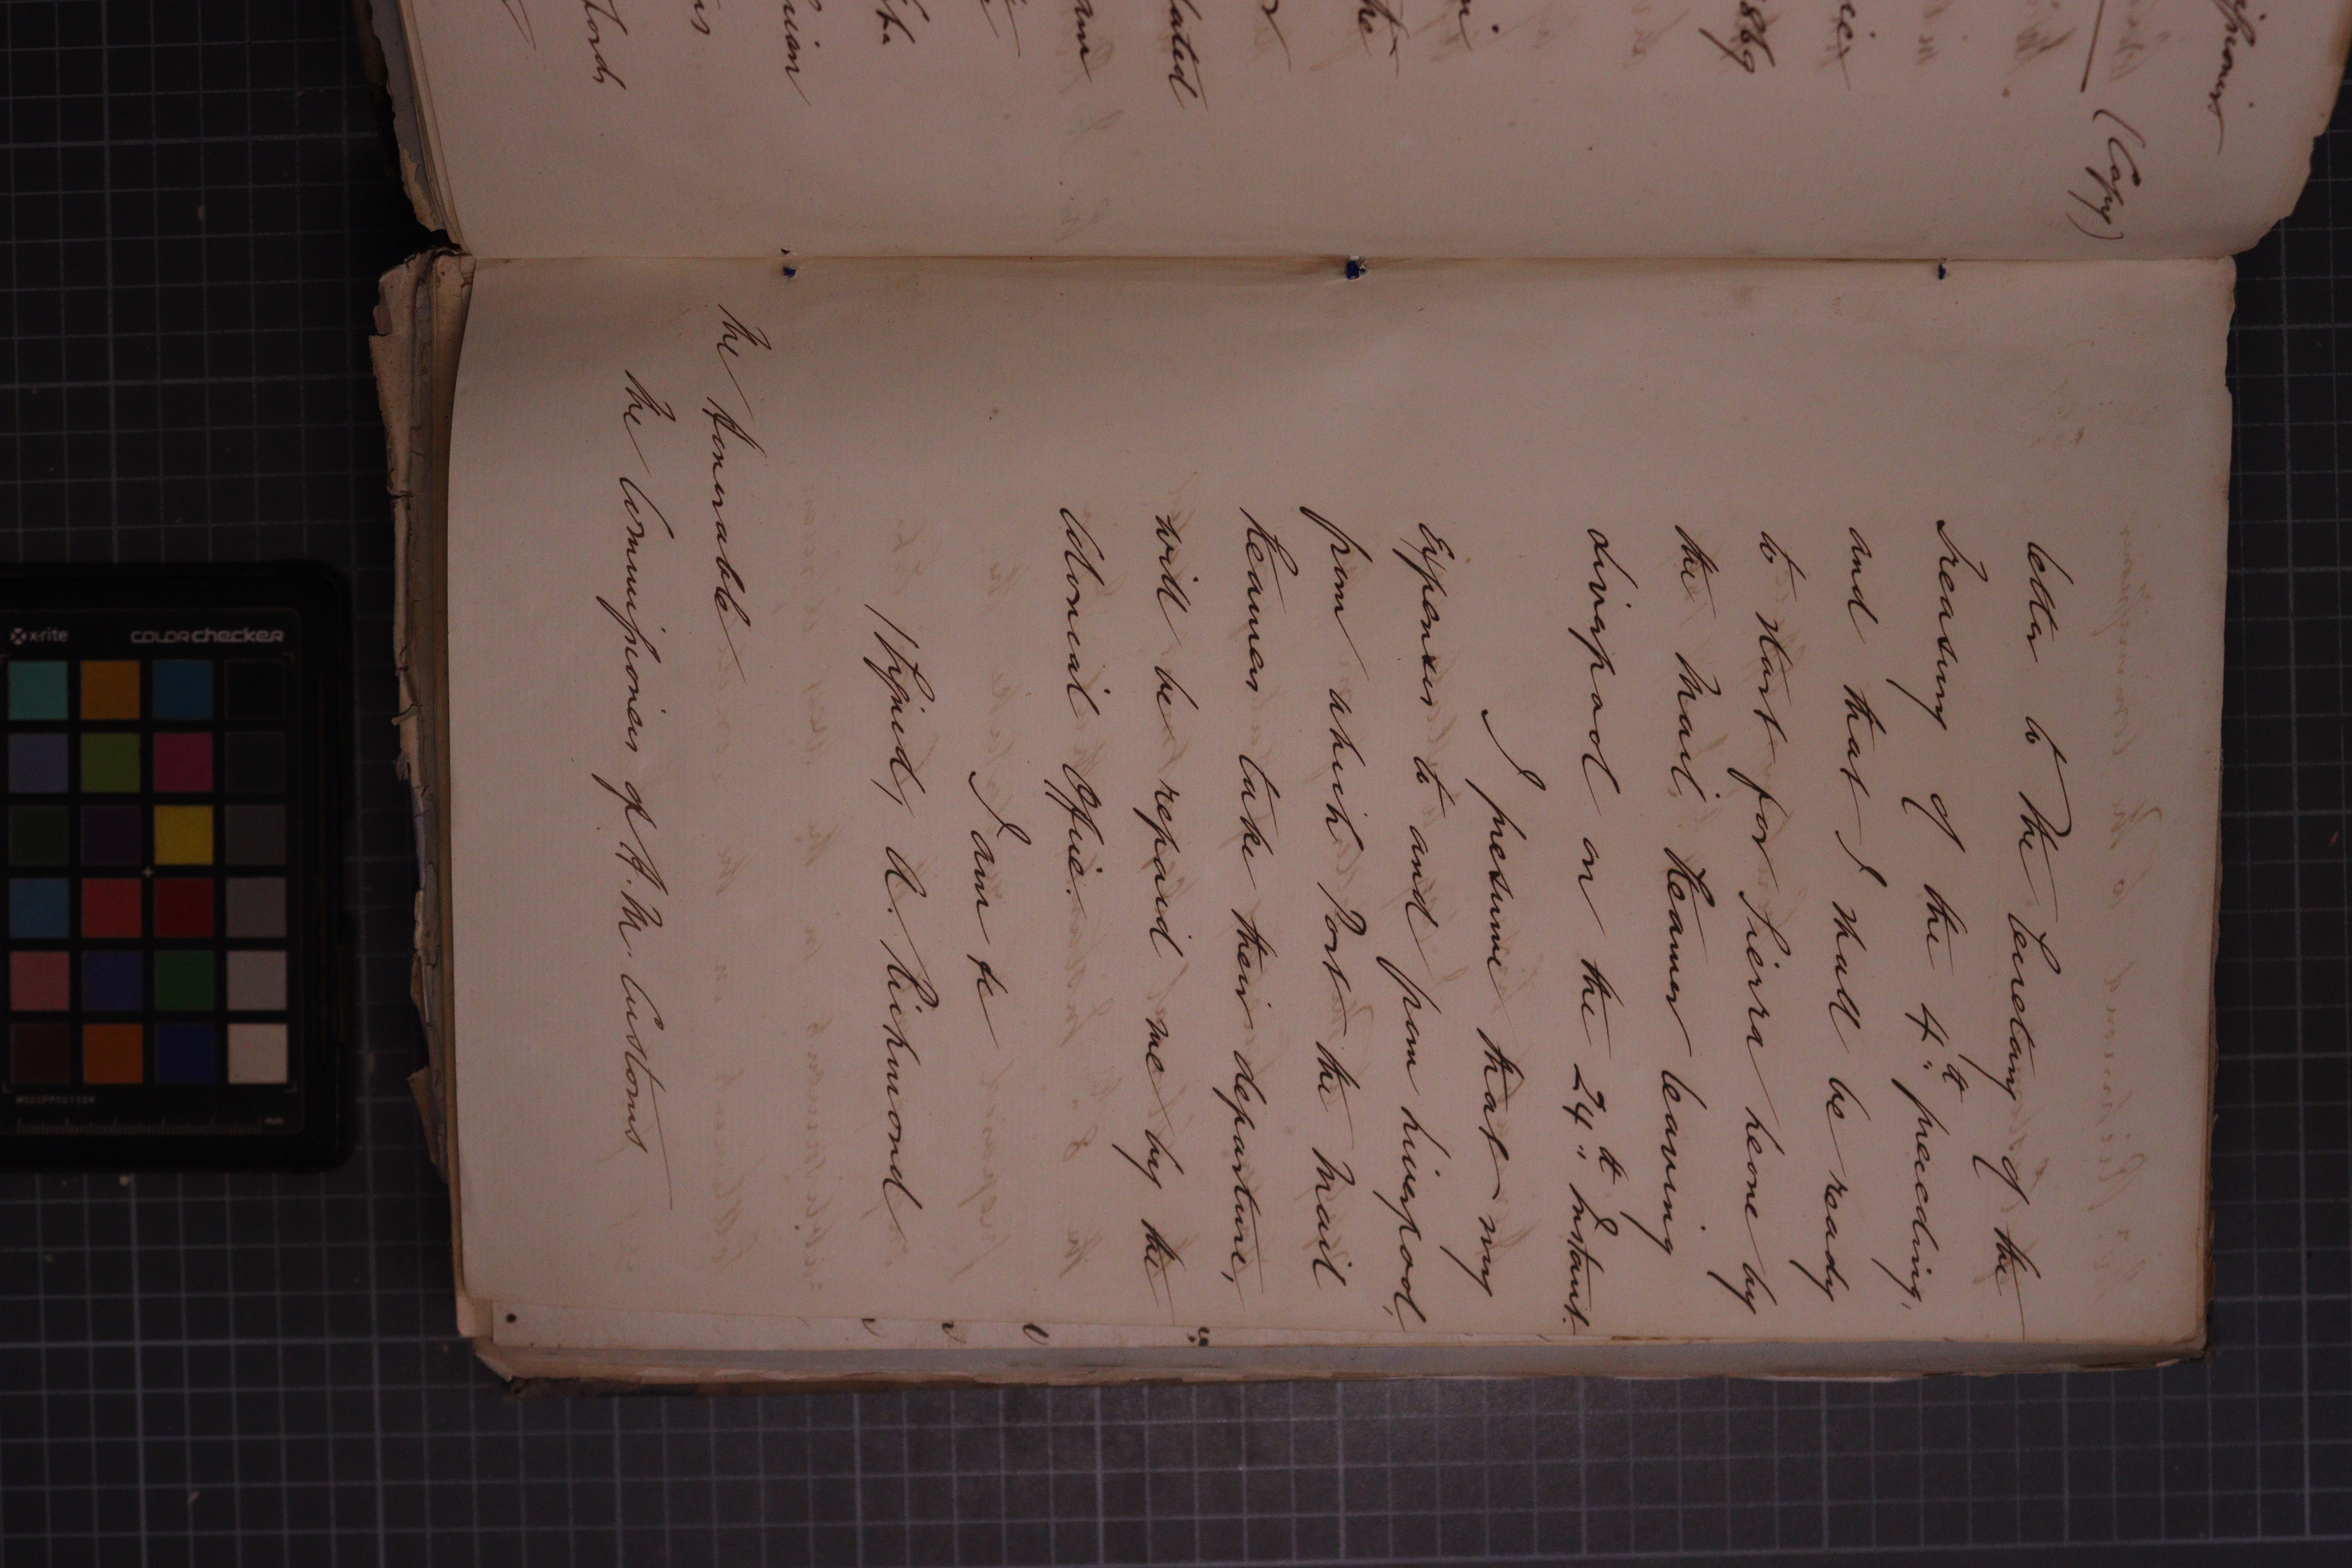 (Copy)
1869
dated
the
Lords
letter to the Secretary of the
Treasury of the 4th preceding,
and that I shall be ready
to start for Sierra Leone by
the Mail Steamer leaving
Liverpool on the 24th Instant.
I presume that my
Expenses to and from Liverpool,
from which Port the Mail
Steamers take their departure,
will be repaid me by the
Colonial Office.
I am &c
(Signed) D. Richmond
The Honorable
The Commissioners of H. M. Customs
x-rite
colorchecker